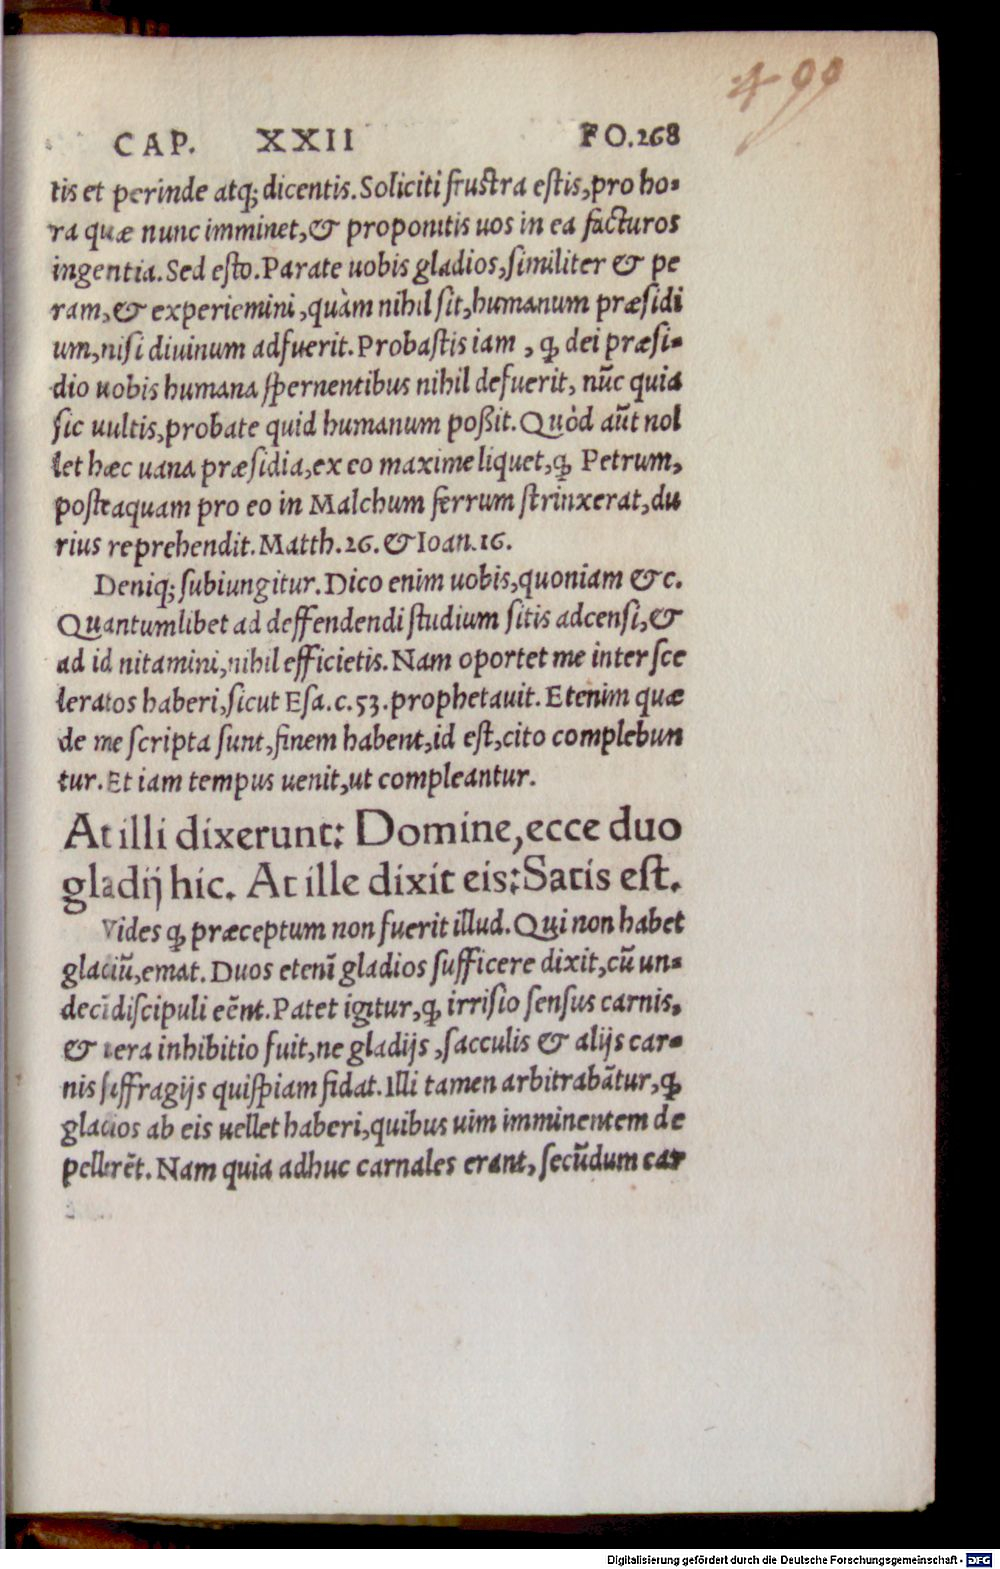 499
CAP. XXII FO.268
tis et perinde atq; dicentis. Soliciti frustra estis, pro ho-
ra quæ nunc imminet, & proponitis uos in ea facturos
ingentia. Sed esto. Parate uobis gladios, similiter & pe
ram, & experiemini, quàm nihil sit, humanum præsidi
um, nisi diuinum adfuerit. Probastis iam, ꝙ dei præsi-
dio uobis humana spernentibus nihil defuerit, nūc quia
sic uultis, probate quid humanum poßit. Quòd aūt nol
let hæc uana præsidia, ex eo maxime liquet, ꝙ Petrum,
posteaquam pro eo in Malchum ferrum strinxerat, du
rius reprehendit. Matth. 26. & Ioan. 16.
Deniq; subiungitur. Dico enim uobis, quoniam &c.
Quantumlibet ad deffendendi studium sitis adcensi, &
ad id nitamini, nihil efficietis. Nam oportet me inter sce
leratos haberi, sicut Esa. c. 53. prophetauit. Etenim quæ
de me scripta sunt, finem habent, id est, cito complebun
tur. Et iam tempus uenit, ut compleantur.
At illi dixerunt: Domine, ecce duo
gladij hic. At ille dixit eis: Satis est.
Vides ꝙ præceptum non fuerit illud. Qui non habet
gladiū, emat. Duos etenī gladios sufficere dixit, cū un-
decī discipuli eēnt. Patet igitur, ꝙ irrisio sensus carnis,
& uera inhibitio fuit, ne gladijs, sacculis & alijs car-
nis suffragijs quispiam fidat. Illi tamen arbitrabātur, ꝙ
gladios ab eis uellet haberi, quibus uim imminentem de
pellerēt. Nam quia adhuc carnales erant, secūdum car
Digitalisierung gefördert durch die Deutsche Forschungsgemeinschaft - DFG